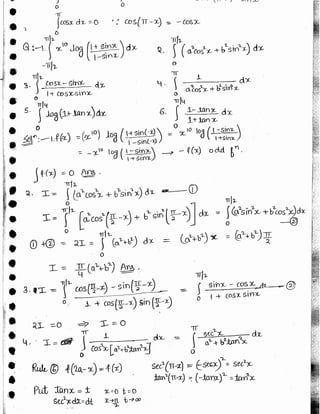 ∫₀^π cosx dx = 0 ∵ cos(π-x) = -cosx.
Q:-1. ∫_{-π/2}^{π/2} x¹⁰ log((1+sinx)/(1-sinx)) dx 2. ∫₀^{π/2} (a²cos²x + b²sin²x) dx
3. ∫₀^{π/2} (cosx - sinx)/(1+cosx sinx) dx 4. ∫₀^π 1/(a²cos²x + b²sin²x) dx
5. ∫₀^{π/4} log(1+tanx) dx 6. ∫₀ (1-tanx)/(1+tanx) dx
Solⁿ:-1. f(-x) = (x¹⁰) log((1+sin(-x))/(1-sin(-x))) = x¹⁰ log((1-sinx)/(1+sinx))
= -x¹⁰ log((1-sinx)/(1+sinx)) → -f(x) odd fⁿ.
∫f(x) = 0 Ans.
2. I = ∫₀^{π/2} (a²cos²x + b²sin²x) dx — ①
I = ∫₀^{π/2} [a²cos²(π/2-x) + b² sin²(π/2-x)] dx = ∫₀ (a²sin²x + b²cos²x) dx — ②
① + ② = 2I = ∫₀ (a²+b²) dx = (a²+b²) x = (a²+b²) π/2
I = π/4 (a²+b²) Ans.
3. I = ∫₀^{π/2} (cos(π/2-x) - sin(π/2-x))/(1 + cos(π/2-x) sin(π/2-x)) = ∫₀^{π/2} (sinx - cosx)/(1 + cosx sinx) dx — ②
2I = 0 ⇒ I = 0
4. I = ∫₀^π 1/(cos²x[a²+b²tan²x]) dx = ∫₀^π sec²x/(a²+b²tan²x) dx
Rule ⑥ f(2a-x) = f(x) sec²(π-x) = (-secx)² = sec²x
tan²(π-x) = (-tanx)² = tan²x
Put tanx = t x=0 t=0
sec²x dx = dt x=π/2 t→∞